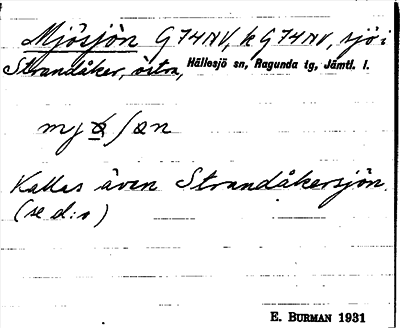 Mjösjön G74NV, k G74NV, sjö i
Strandåker, östra, Hällesjö sn, Ragunda tg, Jämtl. l.
Kallas även Strandåkersjön.
(se d:o)
E. BURMAN 1931